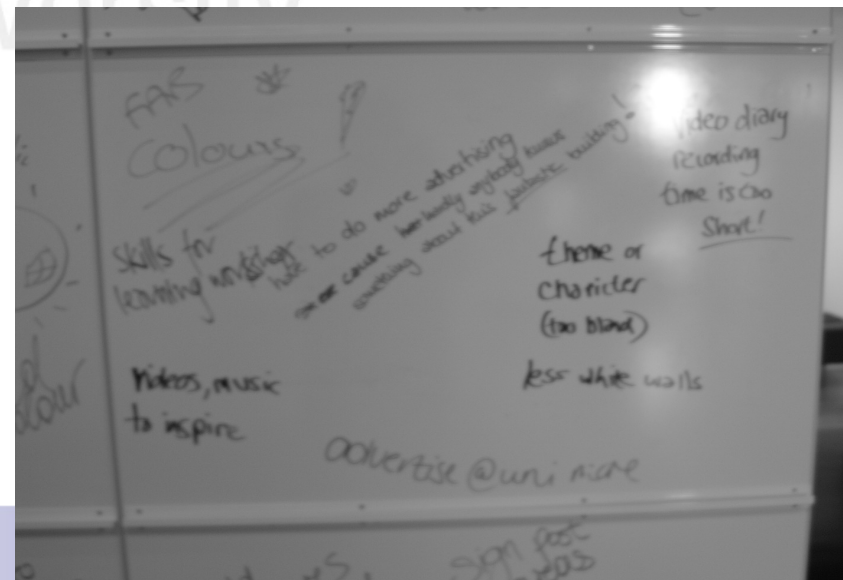 FAB
colours
skills for
learning workshop
have to do more advertising
cause hardly anybody knows
something about this fantastic building!
Video diary
recording
time is too
Short!
theme or
charicter
(too bland)
less white walls
Videos, music
to inspire
advertise @ uni more
sign post